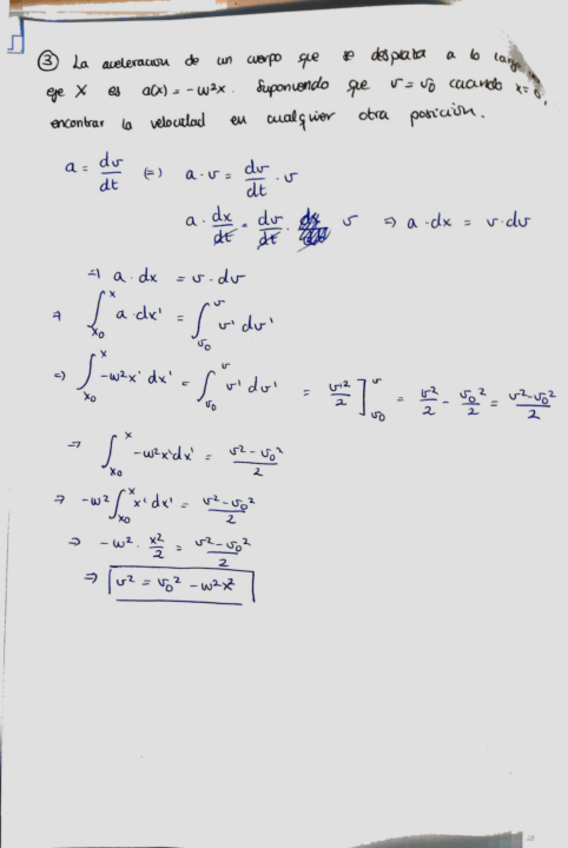 ③ La aceleración de un cuerpo que se desplaza a lo largo
eje X es a(x) = -ω²x. Suponiendo que v = v₀ cuando x = 0,
encontrar la velocidad en cualquier otra posición.
a = dv/dt (=) a · v = dv/dt · v
a · dx/dt = dv/dt · v ⇒ a · dx = v · dv
⇒ a · dx = v · dv
⇒ ∫_{x₀}^{x} a · dx' = ∫_{v₀}^{v} v' dv'
⇒ ∫_{x₀}^{x} -ω²x' dx' = ∫_{v₀}^{v} v' dv' = v'²/2 ]_{v₀}^{v} = v²/2 - v₀²/2 = v²-v₀²/2
⇒ ∫_{x₀}^{x} -ω²x'dx' = v²-v₀²/2
⇒ -ω² ∫_{x₀}^{x} x' dx' = v²-v₀²/2
⇒ -ω² · x²/2 = v²-v₀²/2
⇒ v² = v₀² - ω²x²